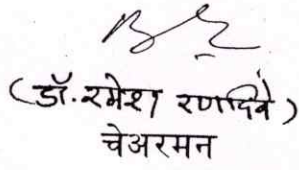 (डॉ. रमेश रणदिवे)
चेअरमन